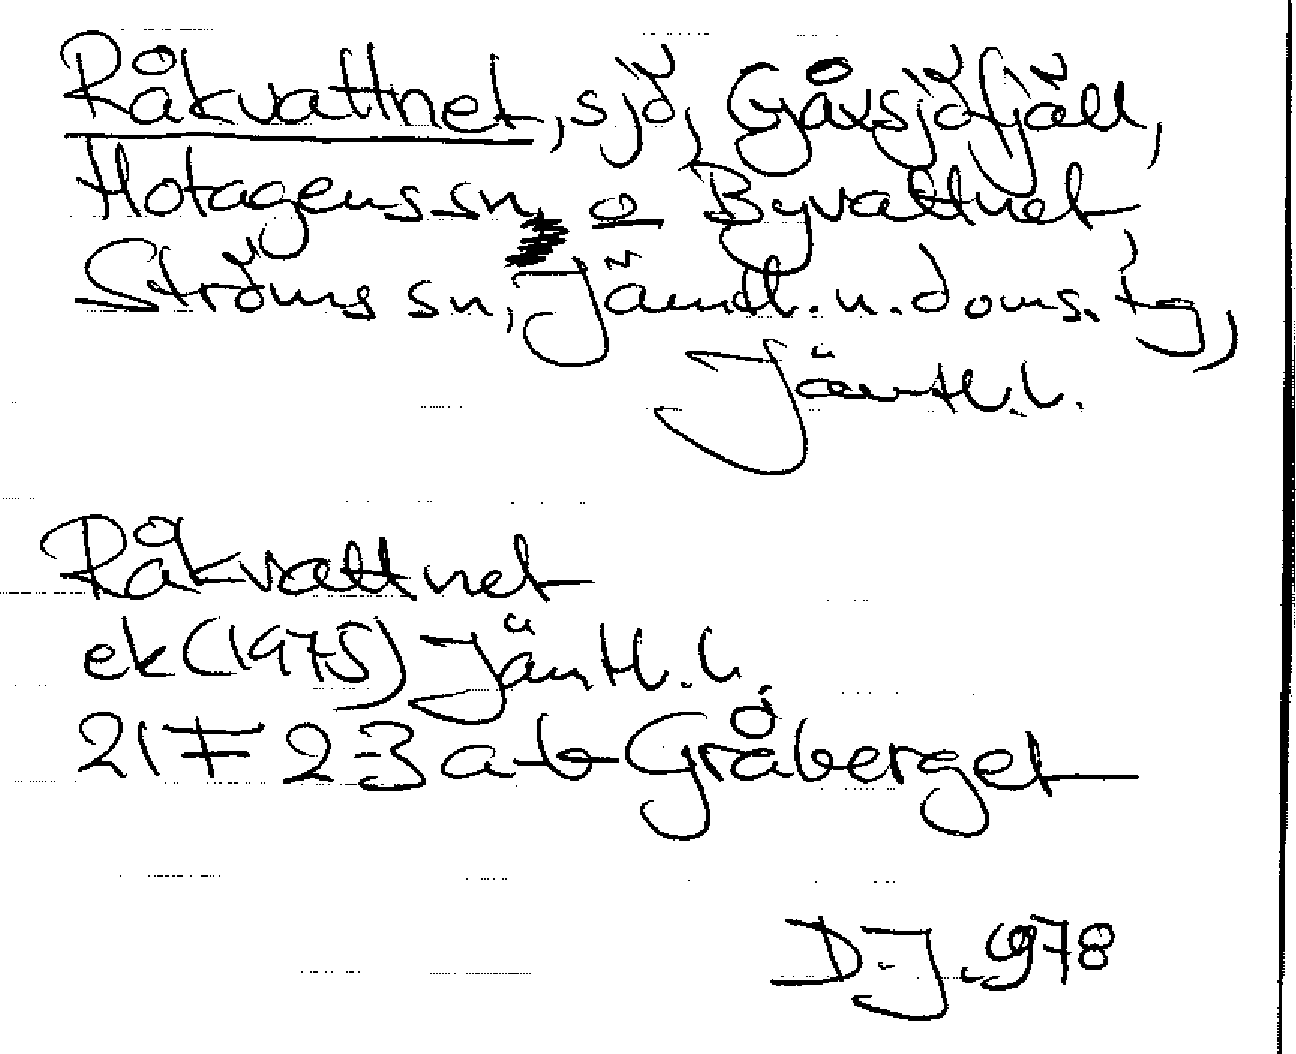 Råkvattnet, sjö, Gåxsjöfjäll,
Hotagens sn, o Byvattnet
Ströms sn, Jämtl. n. doms. tg,
Jämtl. l.
Råkvattnet
ek (1975) Jämtl. l.
21F 2-3 a-b Gråberget
D.J. 1978